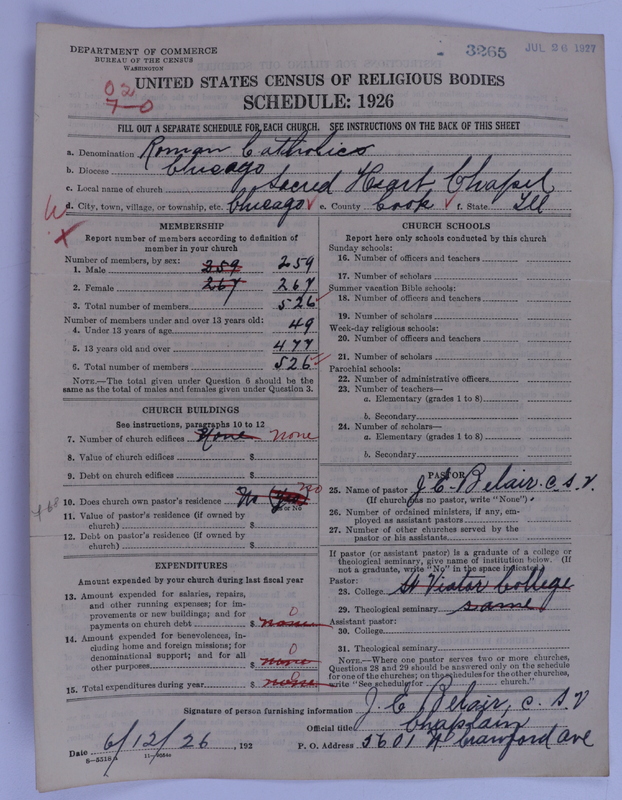 DEPARTMENT OF COMMERCE
BUREAU OF THE CENSUS
WASHINGTON
3265 JUL 26 1927
02
7-0
UNITED STATES CENSUS OF RELIGIOUS BODIES
SCHEDULE: 1926
FILL OUT A SEPARATE SCHEDULE FOR EACH CHURCH. SEE INSTRUCTIONS ON THE BACK OF THIS SHEET
a. Denomination Roman Catholics
b. Diocese Chicago
c. Local name of church Sacred Heart Chapel
d. City, town, village, or township, etc. Chicago e. County Cook f. State Ill
MEMBERSHIP
Report number of members according to definition of
member in your church
Number of members, by sex:
1. Male 259 259
2. Female 267 267
3. Total number of members 526
Number of members under and over 13 years old:
4. Under 13 years of age 49
5. 13 years old and over 477
6. Total number of members 526
NOTE.—The total given under Question 6 should be the
same as the total of males and females given under Question 3.
CHURCH BUILDINGS
See instructions, paragraphs 10 to 12
7. Number of church edifices None none
8. Value of church edifices $
9. Debt on church edifices $
10. Does church own pastor's residence No no
Yes or No
11. Value of pastor's residence (if owned by
church) $
12. Debt on pastor's residence (if owned by
church) $
EXPENDITURES
Amount expended by your church during last fiscal year
13. Amount expended for salaries, repairs,
and other running expenses; for im-
provements or new buildings; and for
payments on church debt $ none 0
14. Amount expended for benevolences, in-
cluding home and foreign missions; for
denominational support; and for all
other purposes $ none 0
15. Total expenditures during year $ none 0
CHURCH SCHOOLS
Report here only schools conducted by this church
Sunday schools:
16. Number of officers and teachers
17. Number of scholars
Summer vacation Bible schools:
18. Number of officers and teachers
19. Number of scholars
Week-day religious schools:
20. Number of officers and teachers
21. Number of scholars
Parochial schools:
22. Number of administrative officers
23. Number of teachers—
a. Elementary (grades 1 to 8)
b. Secondary
24. Number of scholars—
a. Elementary (grades 1 to 8)
b. Secondary
PASTOR
25. Name of pastor J. E. Belair. C. S. V.
(If church has no pastor, write "None").
26. Number of ordained ministers, if any, em-
ployed as assistant pastors
27. Number of other churches served by the
pastor or his assistants
If pastor (or assistant pastor) is a graduate of a college or
theological seminary, give name of institution below. (If
not a graduate, write "No" in the space indicated)
Pastor:
28. College St Viator College
29. Theological seminary same
Assistant pastor:
30. College
31. Theological seminary
NOTE.—Where one pastor serves two or more churches,
Questions 28 and 29 should be answered only on the schedule
for one of the churches; on the schedules for the other churches,
write "See schedule for church."
Signature of person furnishing information J. E. Belair, C. S. V
Official title Chaplain
Date 6/12/26, 192 P. O. Address 5601 N Crawford Ave
8-5518a